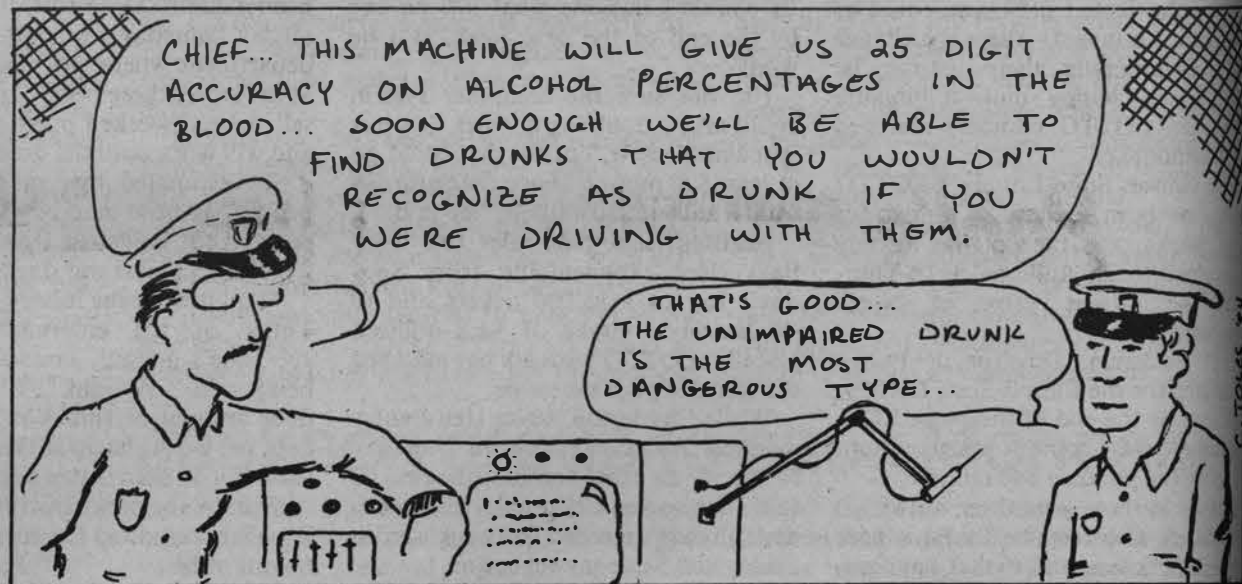 CHIEF... THIS MACHINE WILL GIVE US 25 DIGIT
ACCURACY ON ALCOHOL PERCENTAGES IN THE
BLOOD... SOON ENOUGH WE'LL BE ABLE TO
FIND DRUNKS THAT YOU WOULDN'T
RECOGNIZE AS DRUNK IF YOU
WERE DRIVING WITH THEM.
THAT'S GOOD...
THE UNIMPAIRED DRUNK
IS THE MOST
DANGEROUS TYPE...
STOKES